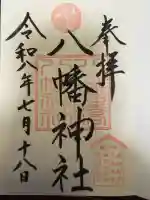 奉拝
八幡神社
令和八年七月十八日